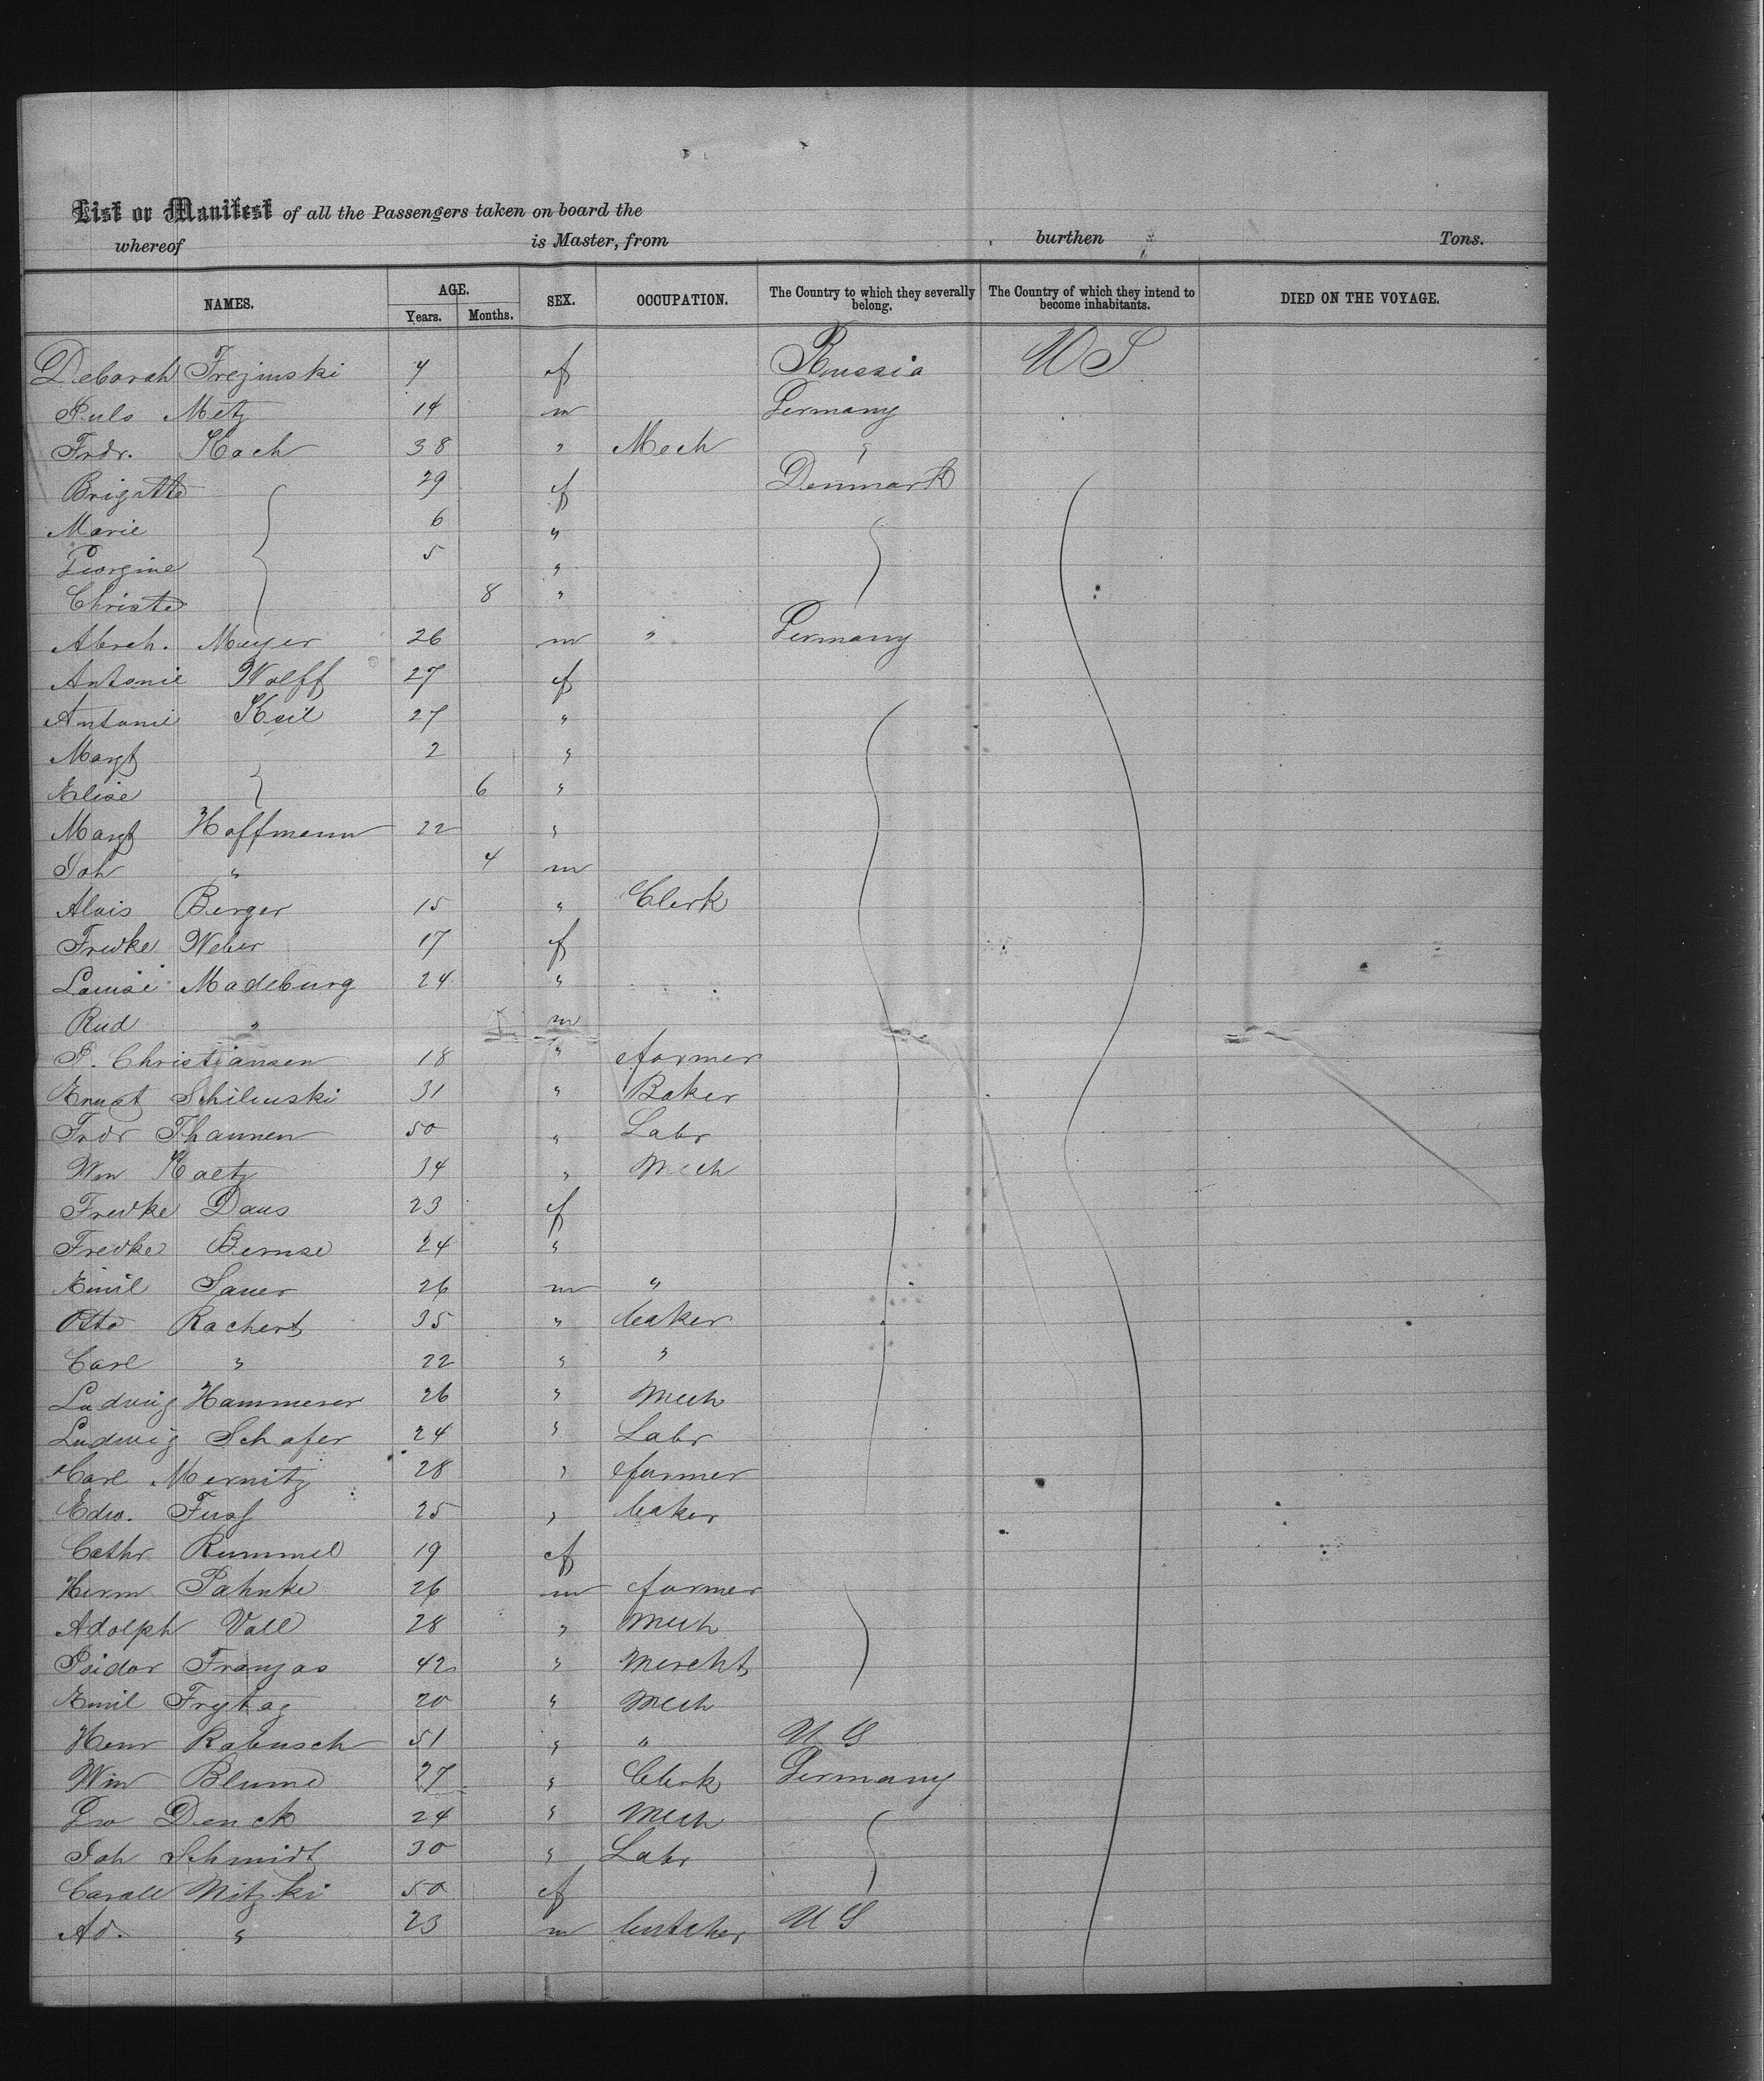 List or Manifest of all the Passengers taken on board the
whereof is Master, from burthen Tons.
NAMES. AGE. SEX. OCCUPATION. The Country to which they severally belong. The Country of which they intend to become inhabitants. DIED ON THE VOYAGE.
Years. Months.
Deborah Frejinski 4 f Russia U S
Metz 14 m Germany
Frdr. Koch 38 " Mech "
Brigitte 29 f Denmark
Marie 6 "
Georgine 5 "
Christe 8 "
Abrah. Meyer 26 m " Germany
Antonie Wolff 27 f
Antonie Keil 27 "
Margt 2 "
Elise 6 "
Margt Hoffmann 22 "
Joh " 4 m
Alois Berger 15 " Clerk
Fredke Weber 17 f
Louise Madeburg 24 "
Rud " m
P. Christiansen 18 " farmer
Ernst Schilinski 31 " Baker
Frdr Thannen 50 " Labr
Wm Koltz 34 " Mech
Fredke Daus 23 f
Fredke Bernse 24 "
Emil Sauer 26 m "
Otto Rachert 35 " baker
Carl " 22 " "
Ludwig Hammerer 26 " Mech
Ludwig Schafer 24 " Labr
Carl Mernitz 28 " farmer
Edw. Fuss 25 " baker
Cathr Rummel 19 f
Herm Pahnke 26 m farmer
Adolph Voll 28 " Mech
Isidor Franzos 42 " Mercht
Emil Frytag 20 " Mech
Henr Rabusch 51 " " U S
Wm Blume 27 " Clerk Germany
Denck 24 " Mech
Joh Schmidt 30 " Labr
Caroll Nitzki 50 f
Ad. " 23 m butcher U S